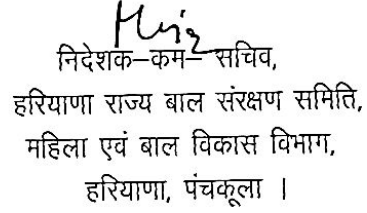 निदेशक–कम– सचिव,
हरियाणा राज्य बाल संरक्षण समिति,
महिला एवं बाल विकास विभाग,
हरियाणा, पंचकूला ।